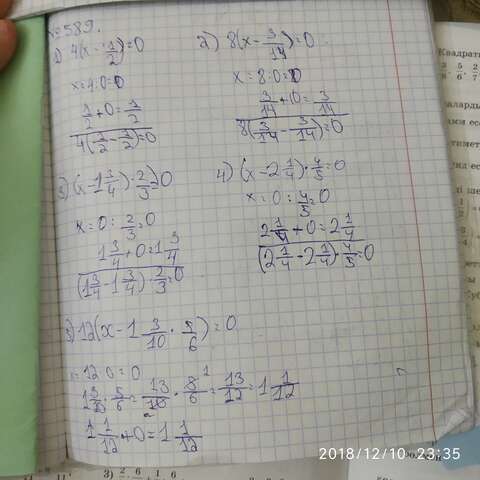 №589.
1) 4(x - 1/2)=0
x=4:0=0
1/2+0=1/2
4(1/2-1/2)=0
2) 8(x-3/14)=0.
x=8:0=0
3/14+0=3/14
8(3/14-3/14)=0
3) (x-1 3/4)·2/3=0
x=0:2/3=0
1 3/4+0=1 3/4
(1 3/4-1 3/4)·2/3=0
4) (x-2 1/4)·4/5=0
x=0:4/5=0
2 1/4+0=2 1/4
(2 1/4-2 1/4)·4/5=0
5) 12(x-1 3/10·5/6)=0
12 0=0
1 3/10·5/6=13/10·5/6=13/12=1 1/12
1 1/12+0=1 1/12
Квадраты
2018/12/10 23:35